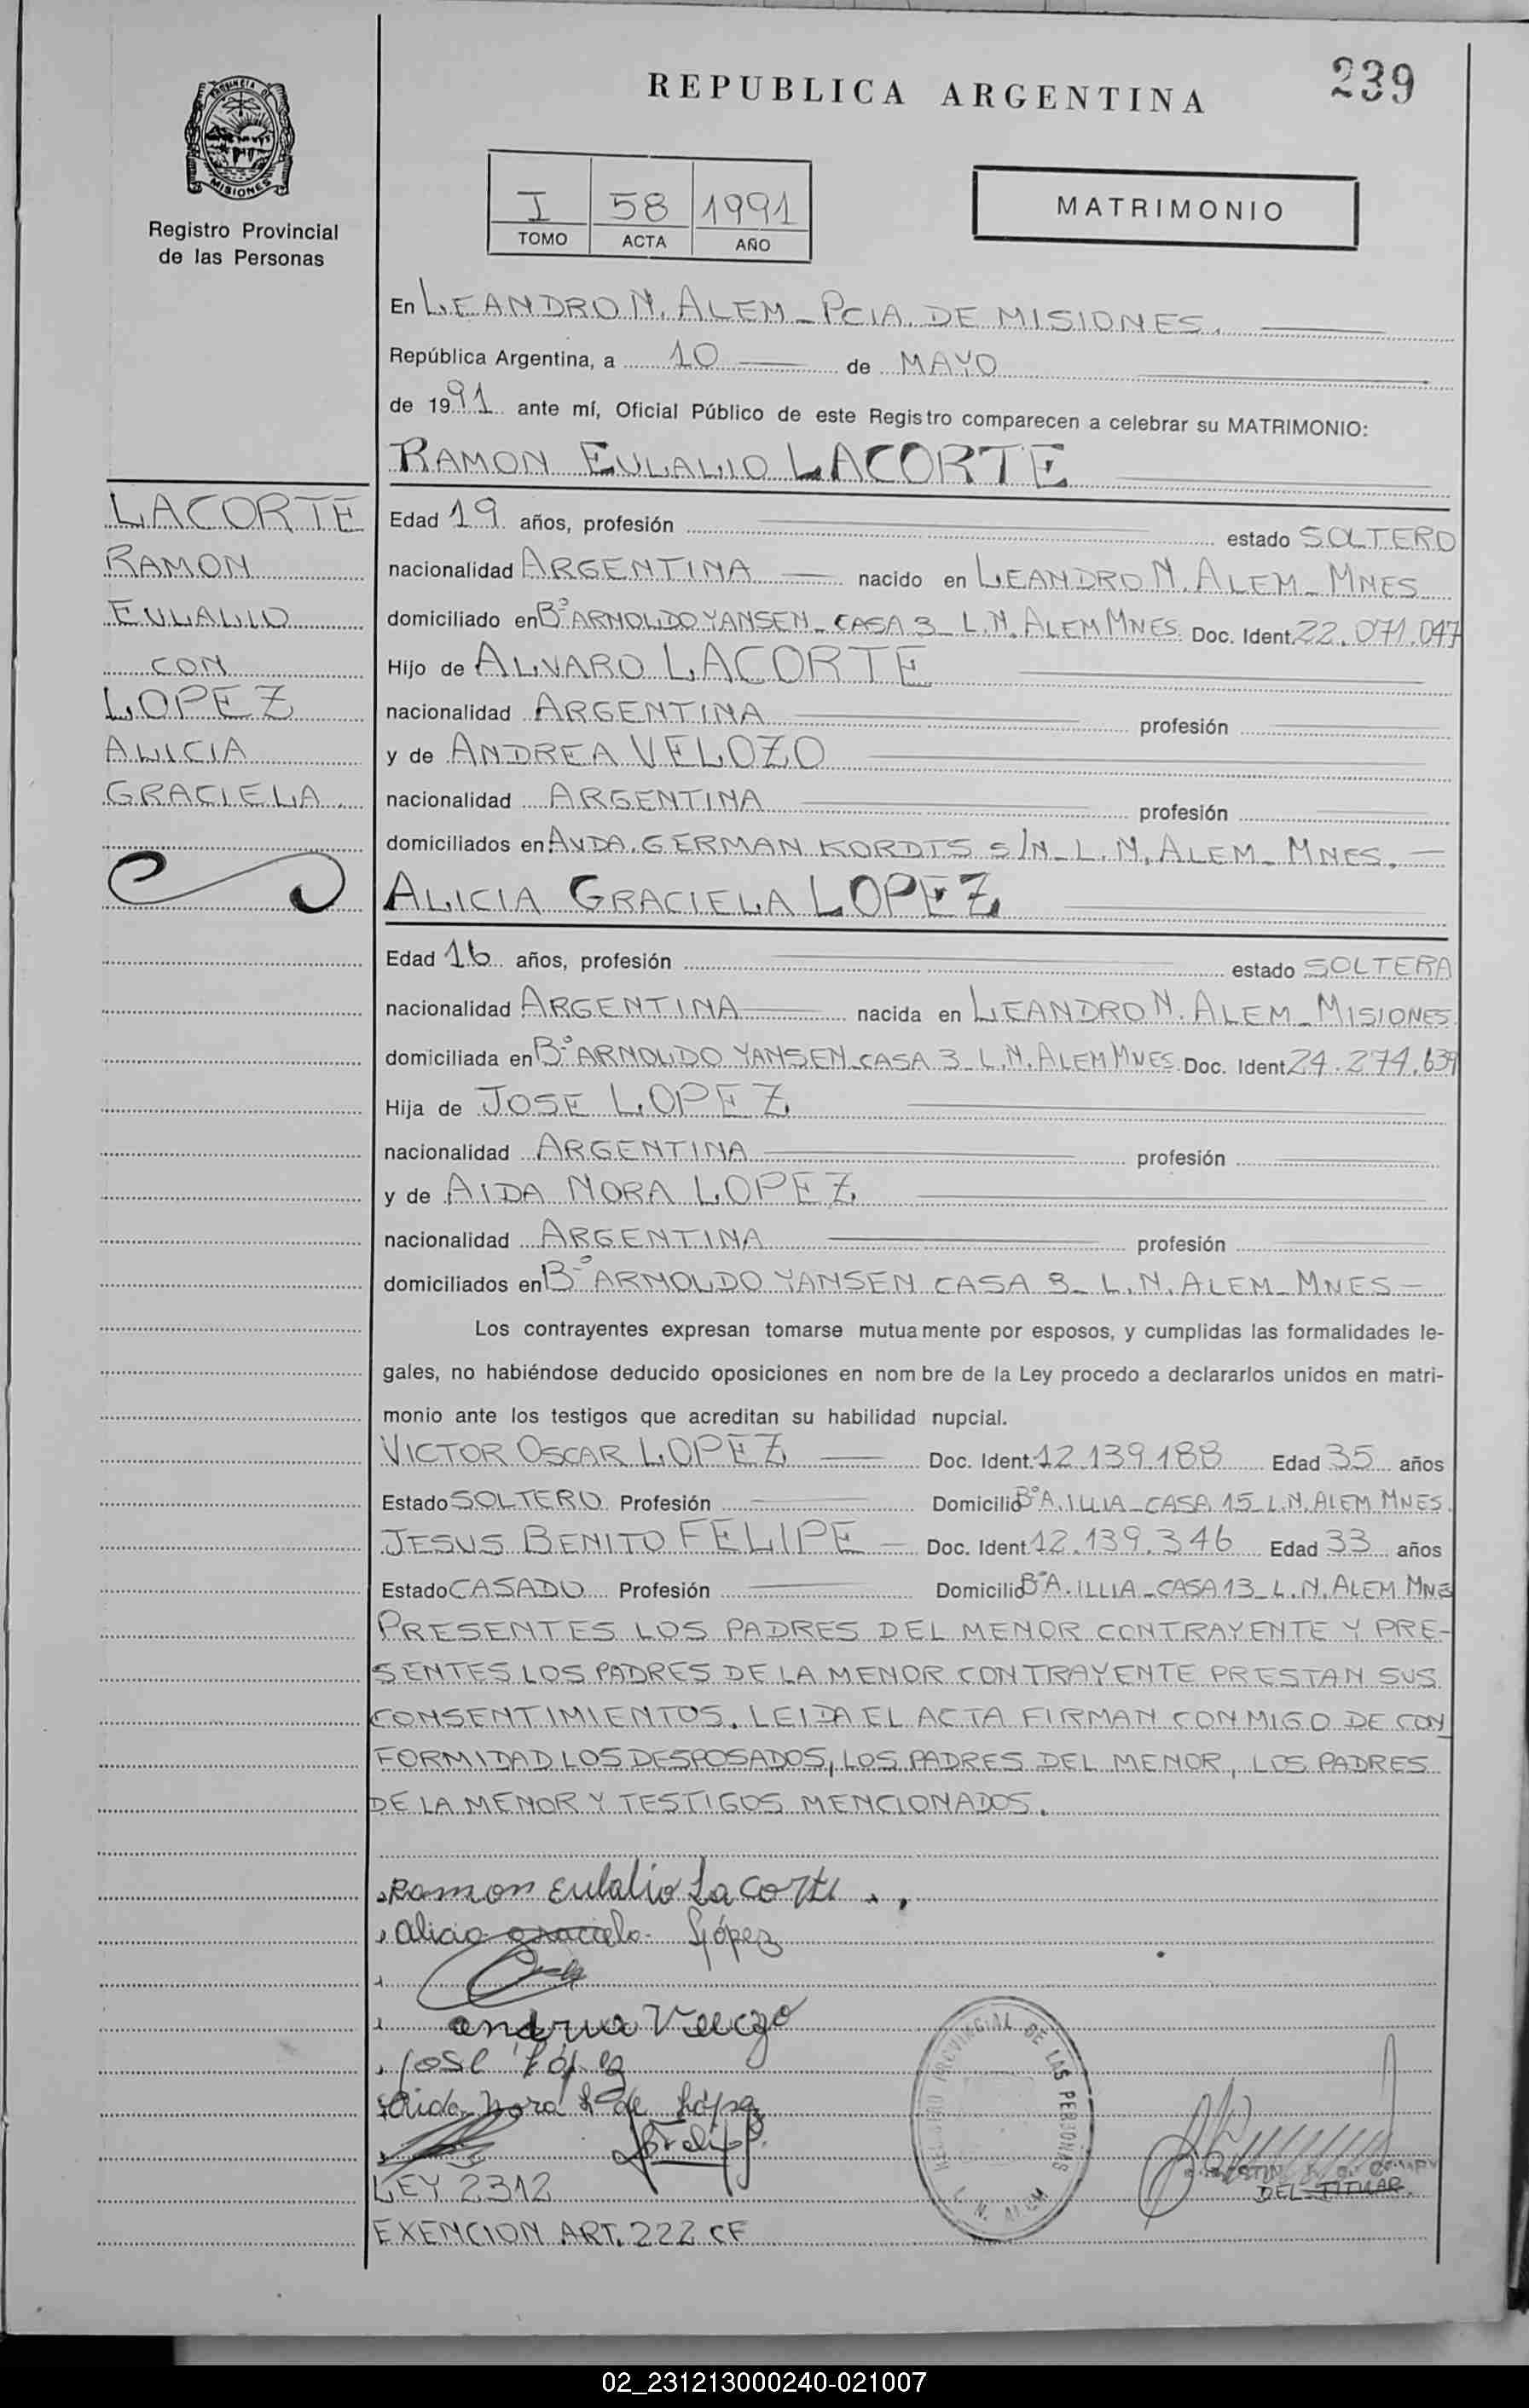 239
REPUBLICA ARGENTINA
PROVINCIA DE
MISIONES
Registro Provincial
de las Personas
I 58 1991
TOMO ACTA AÑO
MATRIMONIO
En LEANDRO N. ALEM - PCIA. DE MISIONES.
República Argentina, a 10 de MAYO
de 1991 ante mí, Oficial Público de este Registro comparecen a celebrar su MATRIMONIO:
RAMON EULALIO LACORTE
LACORTE
RAMON
EULALIO
CON
LOPEZ
ALICIA
GRACIELA
Edad 19 años, profesión estado SOLTERO
nacionalidad ARGENTINA nacido en LEANDRO N. ALEM - MNES
domiciliado en Bº ARNOLDO YANSEN - CASA 3 - L.N. ALEM MNES. Doc. Ident. 22.071.047
Hijo de ALVARO LACORTE
nacionalidad ARGENTINA profesión
y de ANDREA VELOZO
nacionalidad ARGENTINA profesión
domiciliados en AVDA. GERMAN KORDTS s/N - L.N. ALEM - MNES.
ALICIA GRACIELA LOPEZ
Edad 16 años, profesión estado SOLTERA
nacionalidad ARGENTINA nacida en LEANDRO N. ALEM - MISIONES
domiciliada en Bº ARNOLDO YANSEN - CASA 3 - L.N. ALEM MNES. Doc. Ident. 24.274.639
Hija de JOSE LOPEZ
nacionalidad ARGENTINA profesión
y de AIDA NORA LOPEZ
nacionalidad ARGENTINA profesión
domiciliados en Bº ARNOLDO YANSEN CASA 3 - L.N. ALEM - MNES
Los contrayentes expresan tomarse mutuamente por esposos, y cumplidas las formalidades le-
gales, no habiéndose deducido oposiciones en nombre de la Ley procedo a declararlos unidos en matri-
monio ante los testigos que acreditan su habilidad nupcial.
VICTOR OSCAR LOPEZ Doc. Ident. 12.139.188 Edad 35 años
Estado SOLTERO Profesión Domicilio Bº A. ILLIA - CASA 15 - L.N. ALEM MNES.
JESUS BENITO FELIPE Doc. Ident 12.139.346 Edad 33 años
Estado CASADO Profesión Domicilio Bº A. ILLIA - CASA 13 - L.N. ALEM MNE
PRESENTES LOS PADRES DEL MENOR CONTRAYENTE Y PRE-
SENTES LOS PADRES DE LA MENOR CONTRAYENTE PRESTAN SUS
CONSENTIMIENTOS. LEIDA EL ACTA FIRMAN CONMIGO DE CON
FORMIDAD LOS DESPOSADOS, LOS PADRES DEL MENOR, LOS PADRES
DE LA MENOR Y TESTIGOS MENCIONADOS.
Ramon Eulalio Lacorte
Alicia Graciela López
José López
Aida Nora L. de López
REGISTRO PROVINCIAL DE LAS PERSONAS
L. N. ALEM
DEL TITULAR
LEY 2312
EXENCION ART. 222 CF
02_231213000240-021007